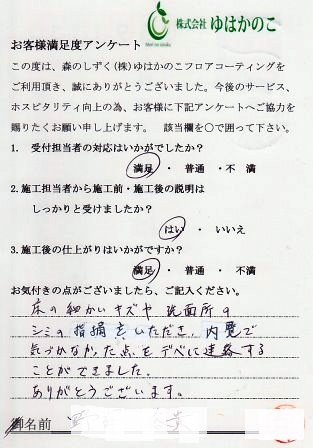 株式会社 ゆはかのこ
お客様満足度アンケート
この度は、森のしずく(株)ゆはかのこフロアコーティングを
ご利用頂き、誠にありがとうございました。今後のサービス、
ホスピタリティ向上の為、お客様に下記アンケートへご協力を
賜りたくお願い申し上げます。 該当欄を○で囲って下さい。
1. 受付担当者の対応はいかがでしたか？
満足 ・ 普通 ・不 満
2.施工担当者から施工前・施工後の説明は
しっかりと受けましたか？
はい ・ いいえ
3.施工後の仕上がりはいかがですか？
満足 ・ 普通 ・ 不 満
お気付きの点がございましたら、ご記入ください。
床の細かいキズや 洗面所の
シミの指摘をいただき、内覧で
気づかなかった点をデベに連絡する
ことができました。
ありがとうございます。
御名前